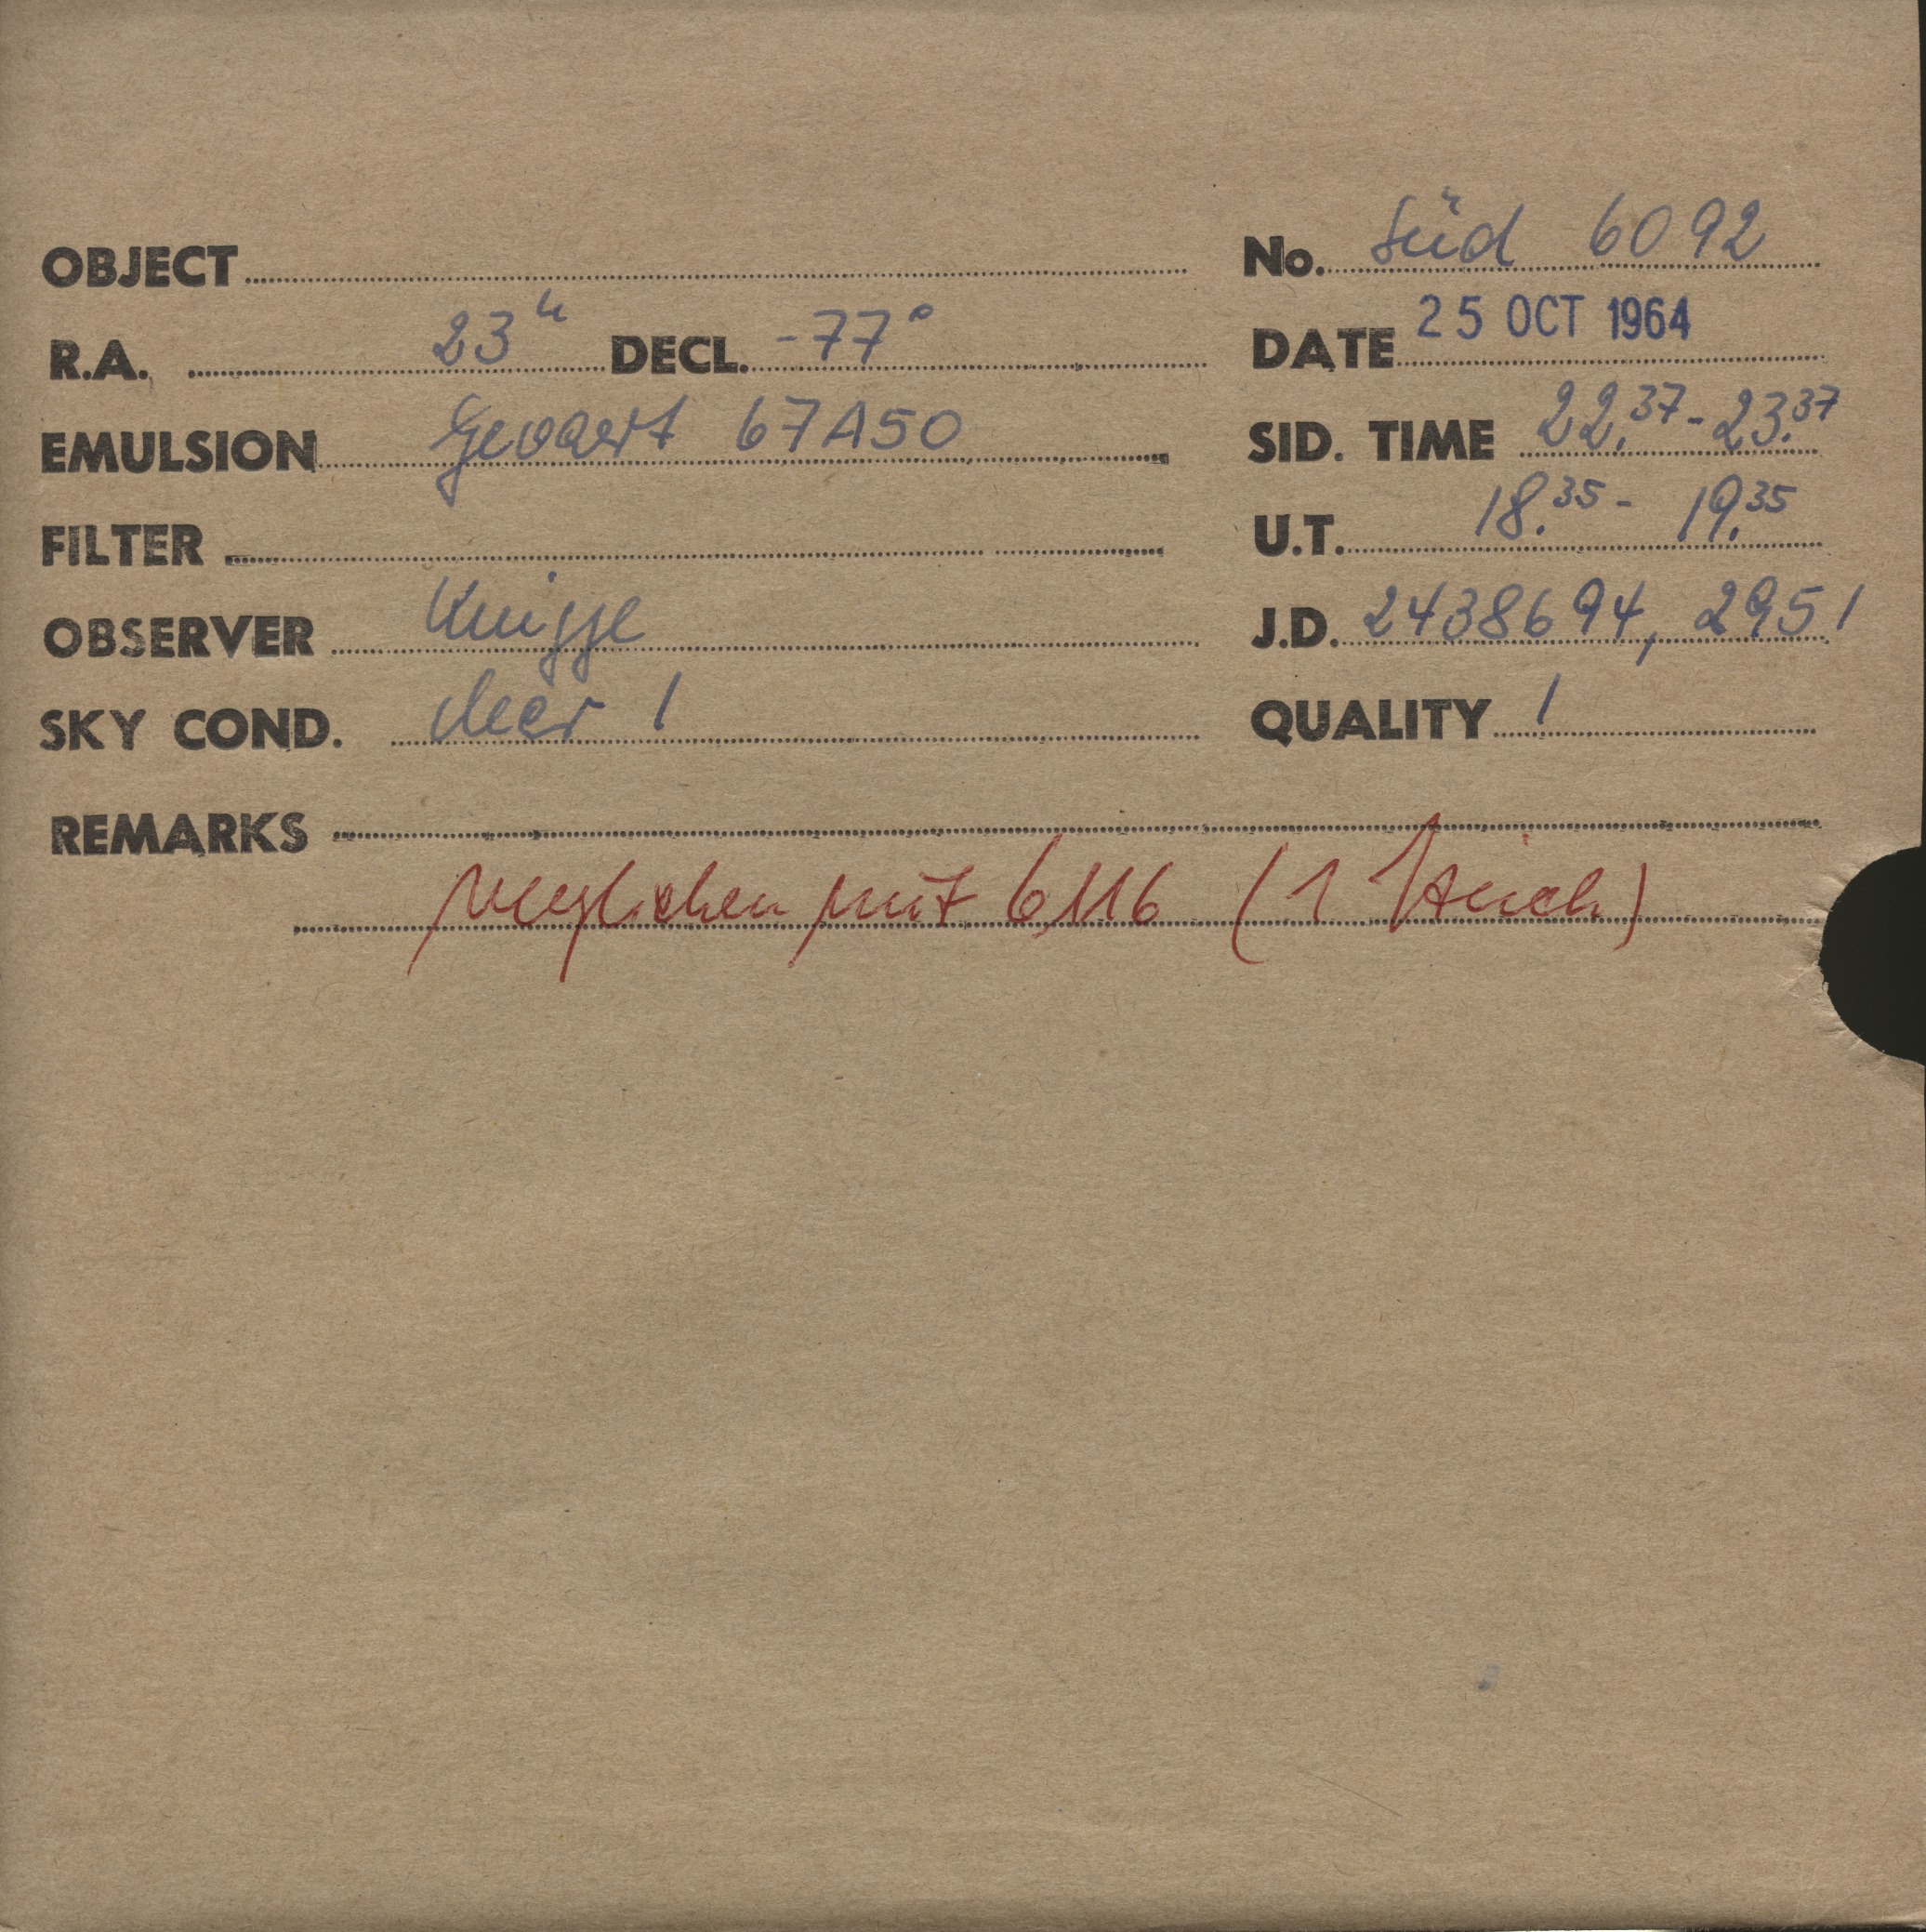 OBJECT
No. Süd 6092
R.A. 23h DECL. -77°
DATE 25 OCT 1964
EMULSION Gevaert 67A50
SID. TIME 22.37 - 23.37
FILTER
U.T. 18.35 - 19.35
OBSERVER Knigge
J.D. 2438694,2951
SKY COND. clear 1
QUALITY 1
REMARKS
verglichen mit 6116 (1